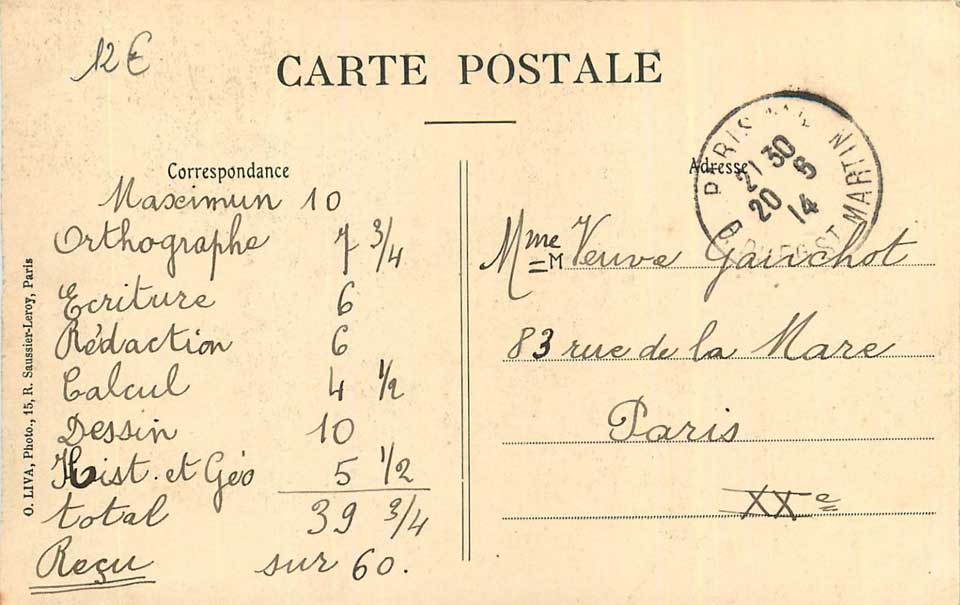 12€
CARTE POSTALE
Correspondance
Maximun 10
Orthographe 7 3/4
Ecriture 6
Rédaction 6
Calcul 4 1/2
Dessin 10
Hist. et Géo 5 1/2
total 39 3/4
Reçu sur 60.
O. LIVA, Photo., 15, R. Saussier-Leroy, Paris
Adresse
PARIS
21 30
20 - 6
14
ST MARTIN
Mme M Veuve Gauchot
83 rue de la Mare
Paris
XXe